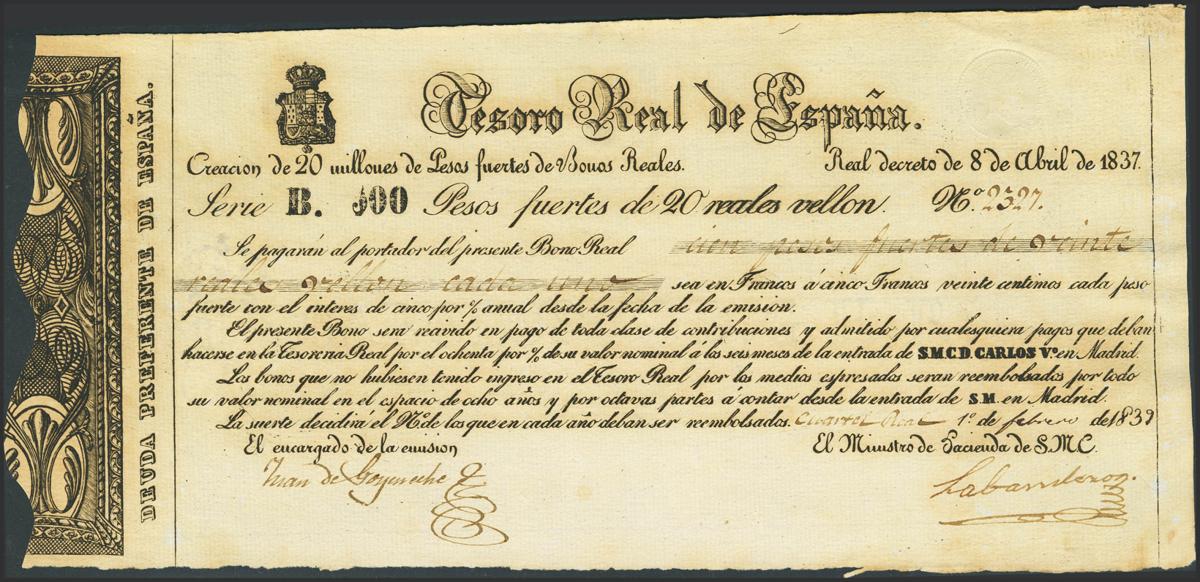 DEUDA PREFERENTE DE ESPAÑA.
Tesoro Real de España.
Creacion de 20 millones de Pesos fuertes de Bonos Reales. Real decreto de 8 de Abril de 1837.
Serie B. 100 Pesos fuertes de 20 reales vellon. Nº 2327.
Se pagarán al portador del presente Bono Real cien pesos fuertes de veinte
reales vellon cada uno sea en Francos á cinco Francos veinte centimos cada peso
fuerte con el interes de cinco por % anual desde la fecha de la emision.
El presente Bono sera recivido en pago de toda clase de contribuciones y admitido por cualesquiera pagos que deban
hacerse en la Tesoreria Real por el ochenta por % de su valor nominal á los seis meses de la entrada de S.M.C.D. CARLOS Vº en Madrid.
Los bonos que no hubiesen tenido ingreso en el Tesoro Real por los medios espresados seran reembolsados por todo
su valor nominal en el espacio de ocho años y por octavas partes a contar desde la entrada de S.M. en Madrid.
La suerte decidirá el Nº de los que en cada año deban ser reembolsados. Cuartel Real 1º de febrero de 1839
El encargado de la emision El Ministro de Hacienda de S.M.C.
Juan de Goyeneche Labandero